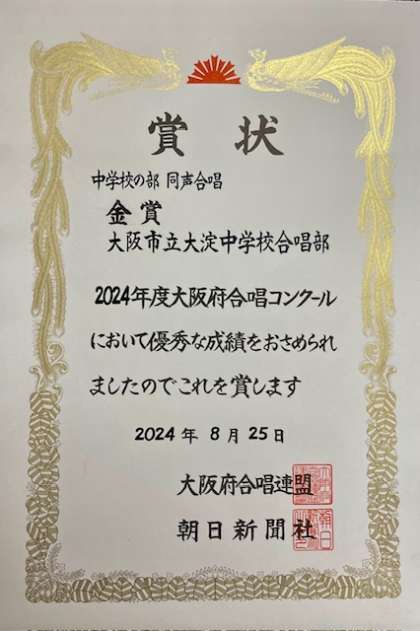 賞状
中学校の部 同声合唱
金賞
大阪市立大淀中学校合唱部
2024年度大阪府合唱コンクール
において優秀な成績をおさめられ
ましたのでこれを賞します
2024年8月25日
大阪府合唱連盟
朝日新聞社